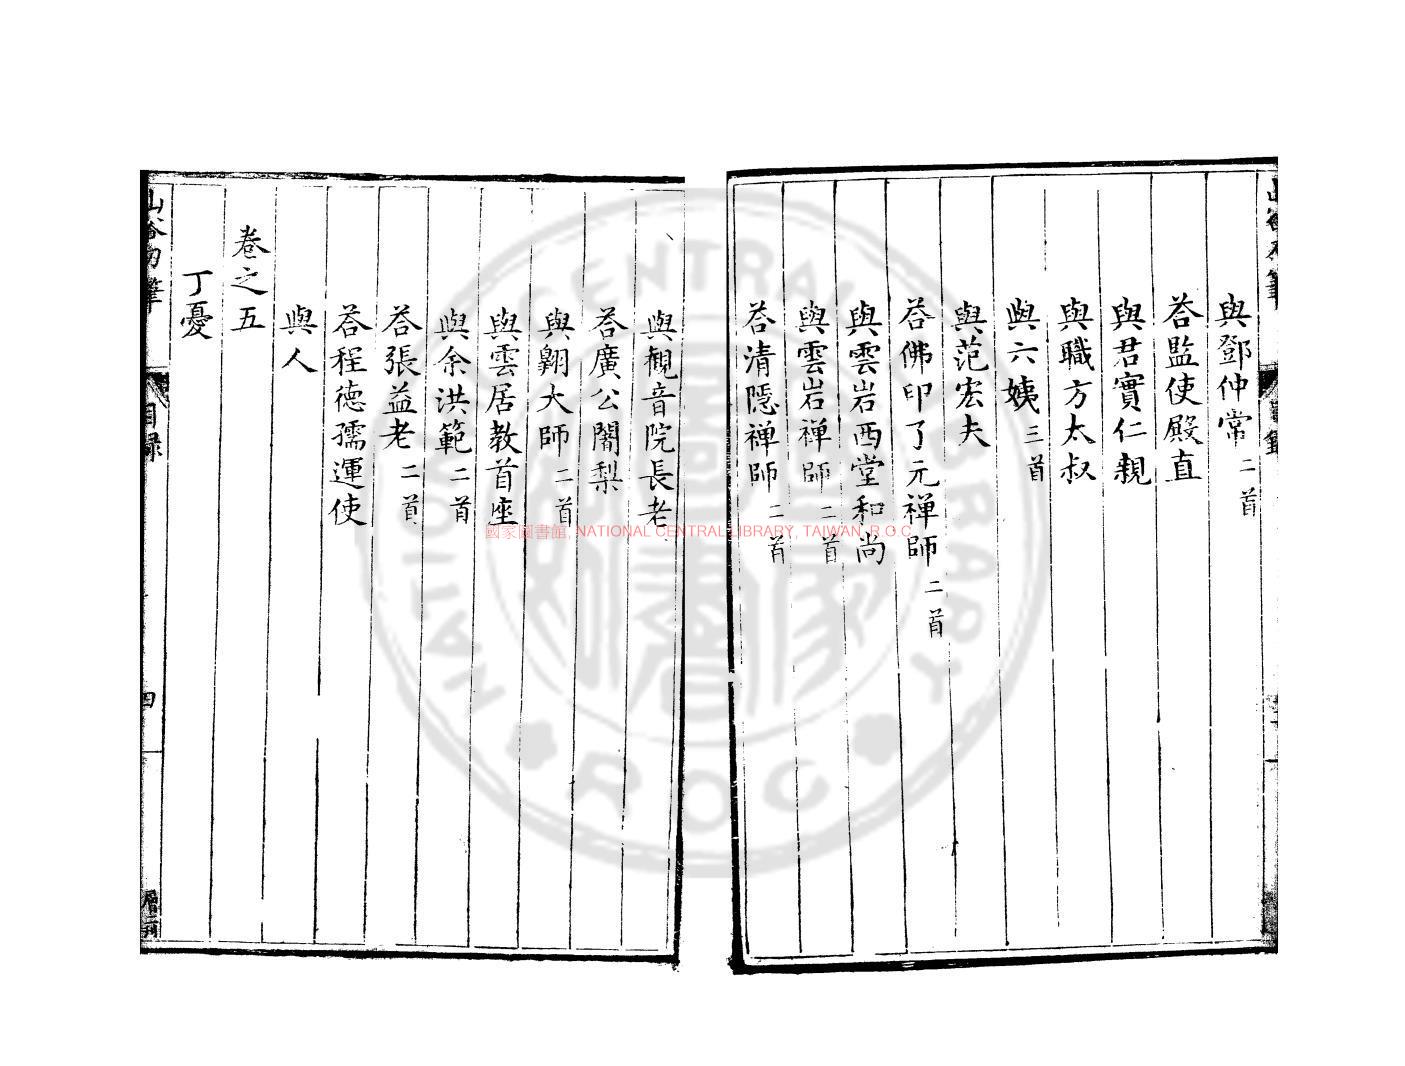 與鄧仲常二首
荅監使殿直
與君實仁親
與職方太叔
與六姨三首
與范宏夫
荅佛印了元禅師二首
與雲岩西堂和尚
與雲岩禅師二首
荅清隱禅師二首
與觀音院長老
荅廣公闍梨
與翺大師二首
與雲居教首座
與余洪範二首
荅張益老二首
荅程德孺運使
與人
卷之五
丁憂
目録
四
國家圖書館, NATIONAL CENTRAL LIBRARY, TAIWAN, R.O.C
NATIONAL CENTRAL LIBRARY
ROC